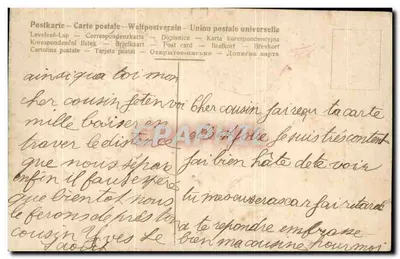 Postkarte - Carte postale - Weltpostverein - Union postale universelle
Levelezö-Lap - Correspondenzkarte - Dopisnice - Karta korespondencyjna
Korespondenční lístek - Briefkaart - Post card - Brefkort - Brevkort
Cartolina postale - Tarjeta postal - Открытое письмо - Дописна карта
ainsi qua toi mon
cher cousin jeten voi
mille baiser en
traver le distence
que nous sépar
enfin il faus espére
que bientot nous
le ferons de près ton
cousin Yves Le
cher cousin jai reçu ta carte
Je suis très content
jai bien hâte de te voir
tu mescuseras car jai retardé
a te repondre embrasse
bien ma cousine pour moi